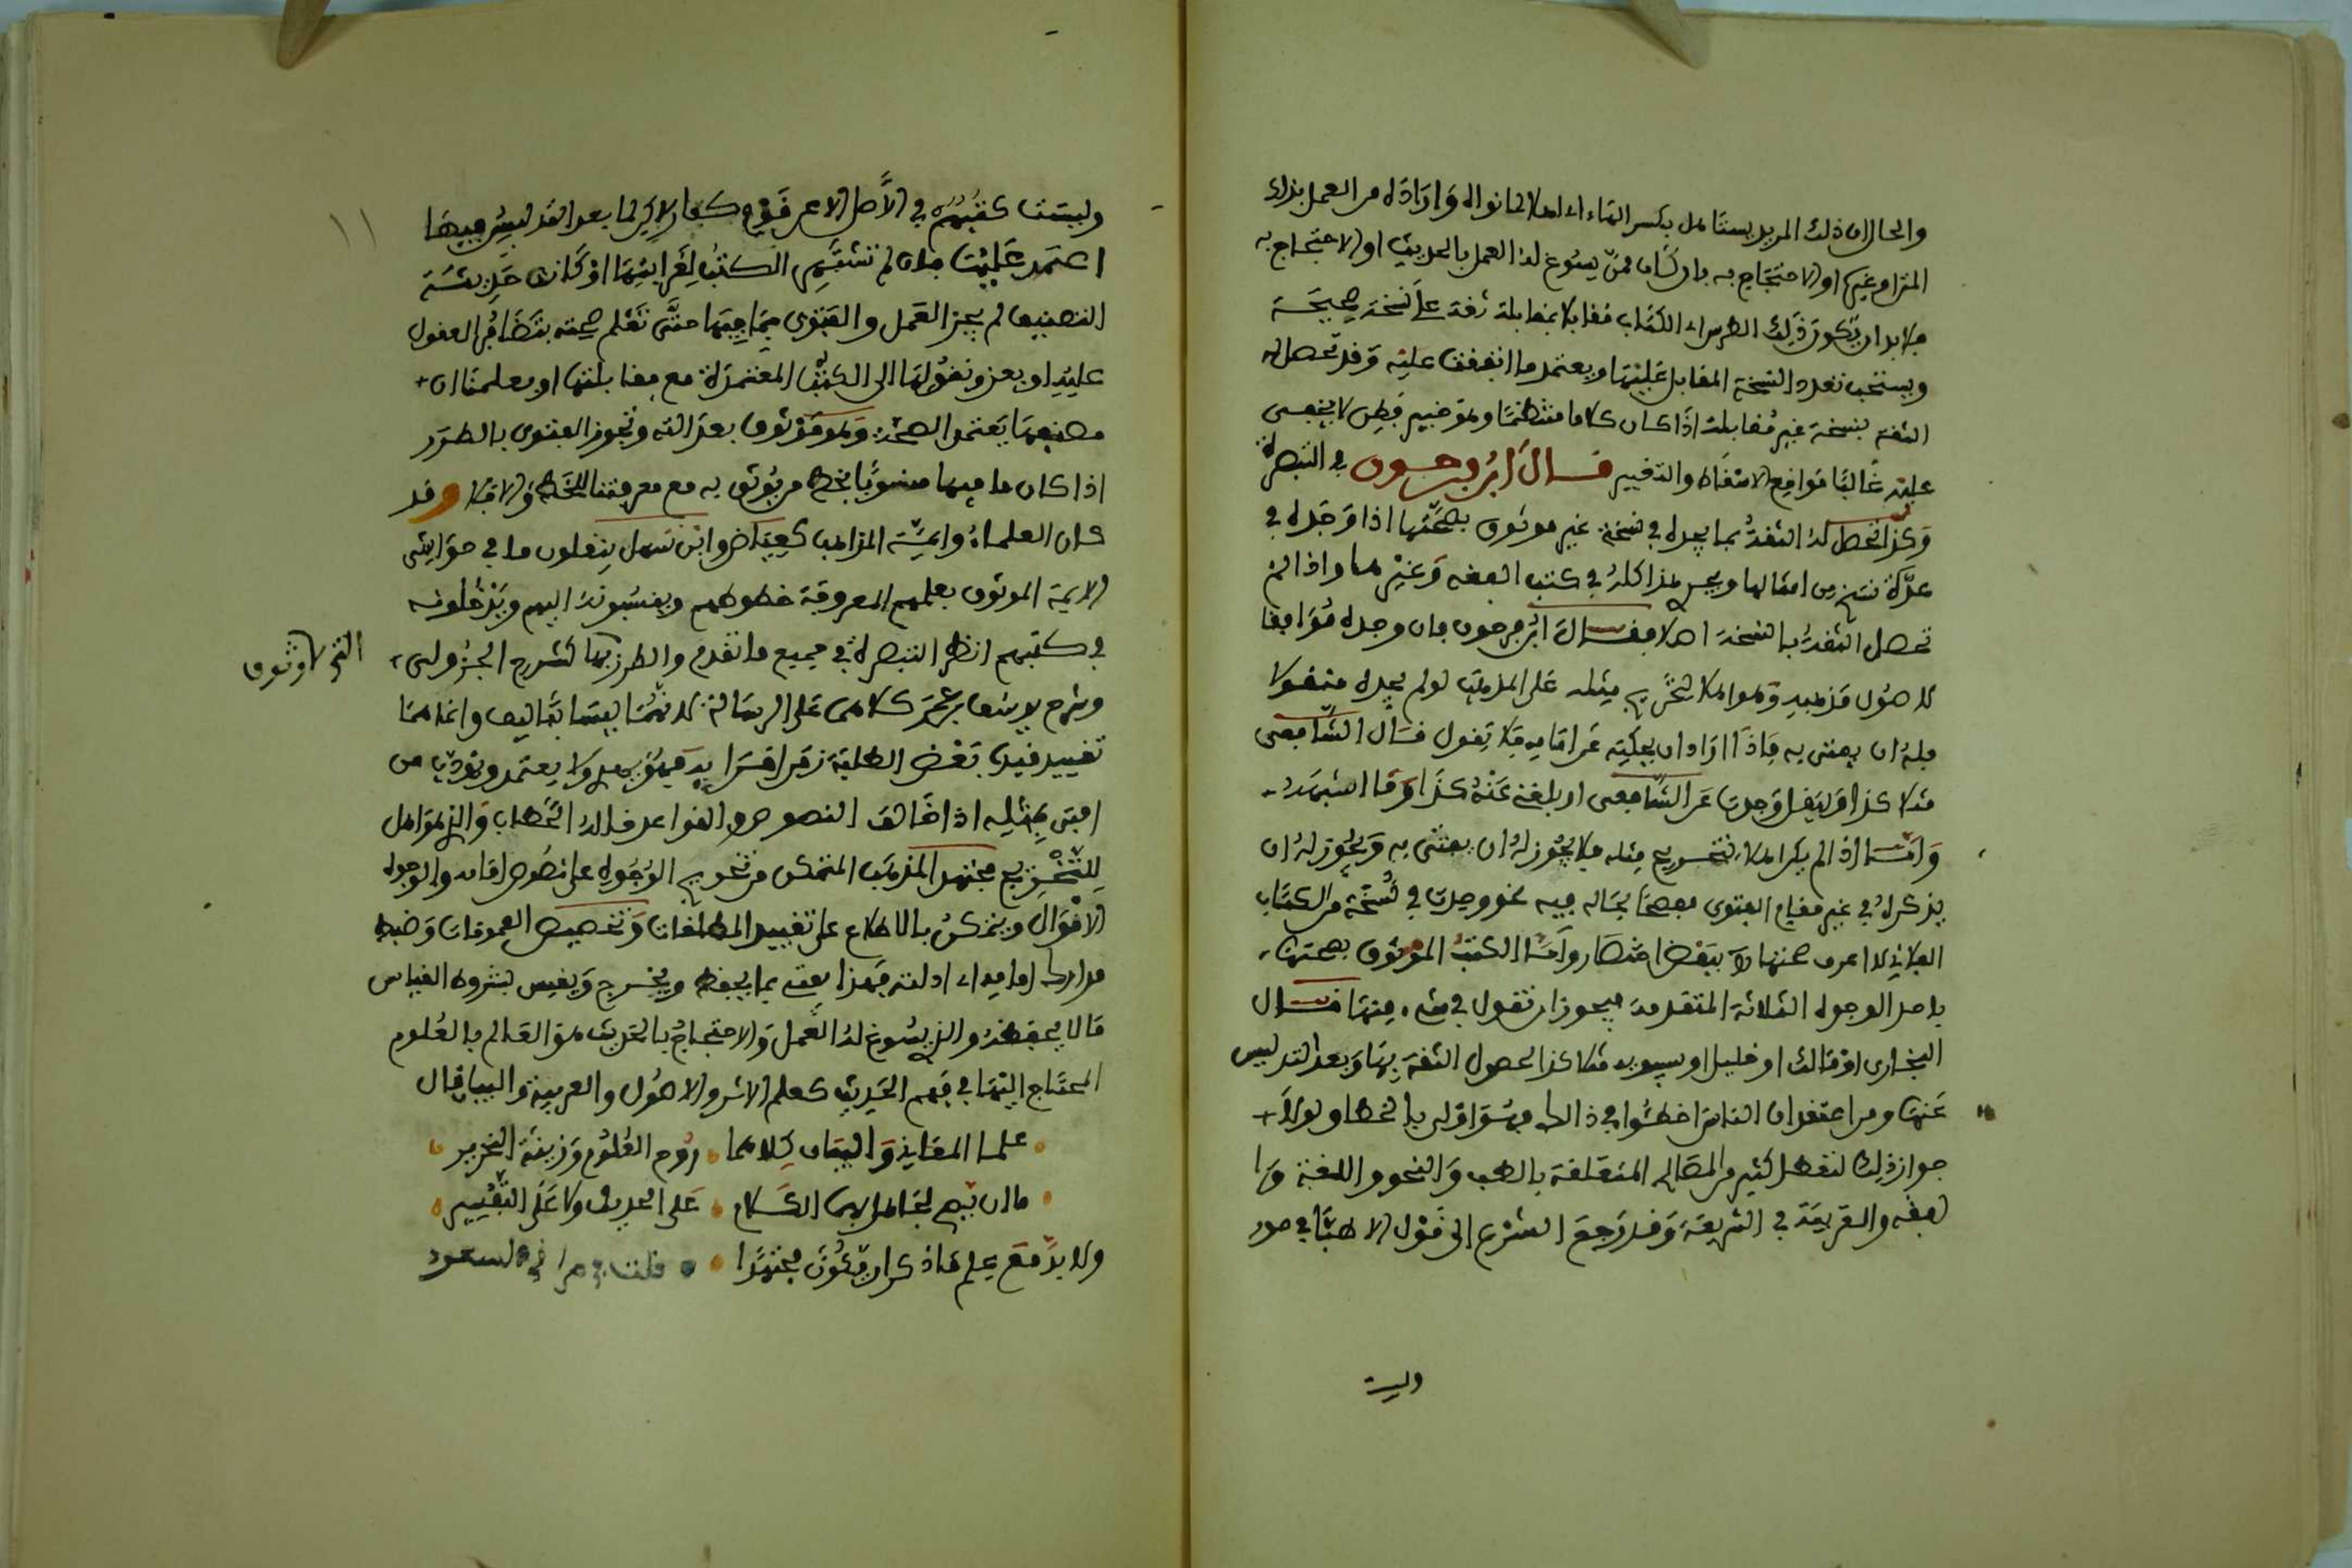 والحال ان ذلك المريد يستاهل بكسر الهاء اي اهلا لما نواه وارادته من العمل بذلك
المتن او غيره او الاحتجاج به بان كان ممن يسوغ له العمل بالحديث او الاحتجاج به
فلا بد ان تكون ذلك الطرس اي الكتاب مقابلا بمقابلة ثقة على نسخة صحيحة
ويستحب تعدد النسخة المقابل عليها ويعتمد ما اتفقت عليه وقد تحصل
الثقة بنسخة غير مقابلة اذا كان كلاما منتظما وهو خبير فطن لا يخفى
عليه غالبا مواقع الاسقاط والتغيير قال ابن فرحون في التبصرة
وكذا تحصل له الثقة بما يجده في نسخة غير موثوق بصحتها اذا وجده في
عدة نسخ من امثالها ويجري هذا كله في كتب الفقه وغيرها واذا لم
تحصل الثقة بالنسخة اصلا فقال ابن فرحون فان وجده موافقا
لاصول مذهبه وهو اهل لتخريج مثله على المذهب لو لم يجده منقولا
فله ان يفتي به فاذا اراد ان يحكيه عن امامه فلا يقول قال الشافعي
مثلا كذا وليقل وجدت عن الشافعي او بلغني عنه كذا وما اشبهه
واما اذا لم يكن اهلا لتخريج مثله فلا يجوز له ان يفتي به ويجوز له ان
يذكره في غير مقام الفتوى مفصحا بحاله فيه نحو وجدت في نسخة من الكتاب
الفلاني لا اعرف صحتها او ببعض امصار واما الكتب الموثوق بصحتها
باحد الوجوه الثلاثة المتقدمة فيجوز ان تقول في شيء منها قال
البخاري او مالك او خليل او سيبويه مثلا كذا لحصول الثقة بها وبعد التدليس
عنها ومن اعتقد ان الناس اخطئوا في ذلك فهو اولى بالخطا ولولا
جواز ذلك لتعطل كثير من المصالح المتعلقة بالطب والنحو واللغة وا
لفقه والعربية في الشريعة وقد رجع الشرع الى قول الاطباء في صور
وليست
وليست كتبهم في الاصل الا عن قوم كفار ولكن لما بعد التدليس فيها
اعتمد عليها فان لم تشتهر الكتب لغرابتها او كانت حديثة
التصنيف لم يجز العمل والفتوى بما فيها حتى تعلم صحته بتظافر العقول
عليه او بعزو نقولها الى الكتب المعتمدة مع مقابلتها او بعلمنا ان
مصنفها يعتمد الصحة وهو موثوق بعدالته وتجوز الفتوى بالطرر
اذا كان ما فيها منسوبا بخط من يوثق به مع معرفتنا للخط والا فلا وقد
كان العلماء وايمة المذاهب كعياض وابن سهل ينقلون ما في حواشي
الايمة الموثوق بعلمهم المعروفة خطوطهم وينسبونه اليهم ويدخلونه
في كتبهم انظر التبصرة في جميع ما تقدم والطرر كشرح الجزولي
التي لا وثوق
وشرح يوسف بن عمر كلاهما على الرسالة لانهما ليسا بتاليف وانما هما
تقييد قيده بعض الطلبة زمن اقرائه فهو يهدي ولا يعتمد ويؤدب من
افتى بمثله اذا خالف النصوص والقواعد قاله الحطاب والذي هو اهل
للتخريج مجتهد المذهب المتمكن من تخريج الوجوه على نصوص امامه والوجوه
الاقوال ويتمكن بالاطلاع على تقييد المطلقات وتخصيص العمومات وضبط
مدارك امامه اي ادلته فهذا يفتي بما يحفظ ويخرج ويقيس بشروط القياس
ما لا يحفظه والذي يسوغ له العمل والاحتجاج بالحديث هو العالم بالعلوم
المحتاج اليها في فهم الحديث كعلم الاثر والاصول والعربية والبيان قال
علما المعاني والبيان كلاهما روح العلوم وزينة النحرير
ما ان يبح لجاهل بهما الكلام على الحديث ولا على التفسير
ولا بد مع علم ما ذكر ان يكون مجتهدا قلت في مراقي السعود